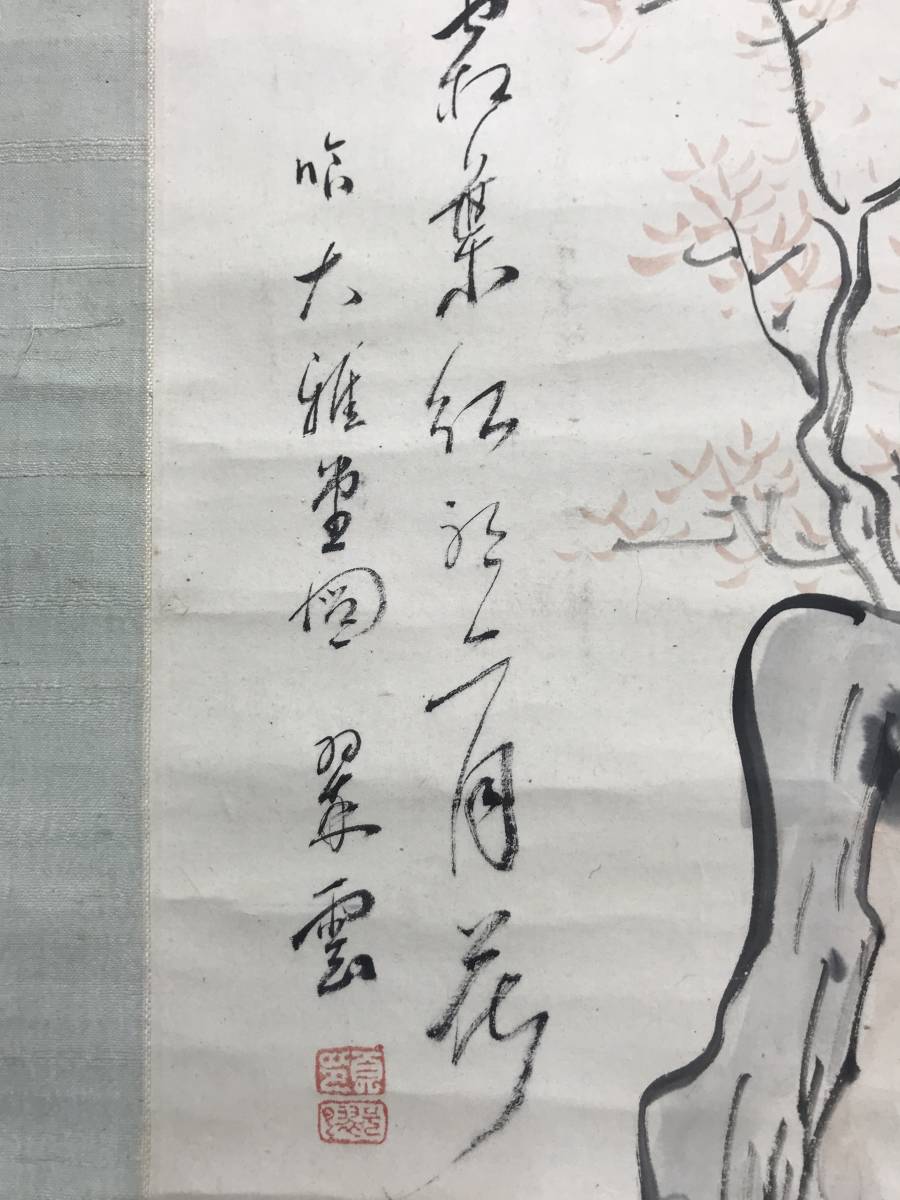 霜葉紅於二月花
大雅堂圖 翠雲